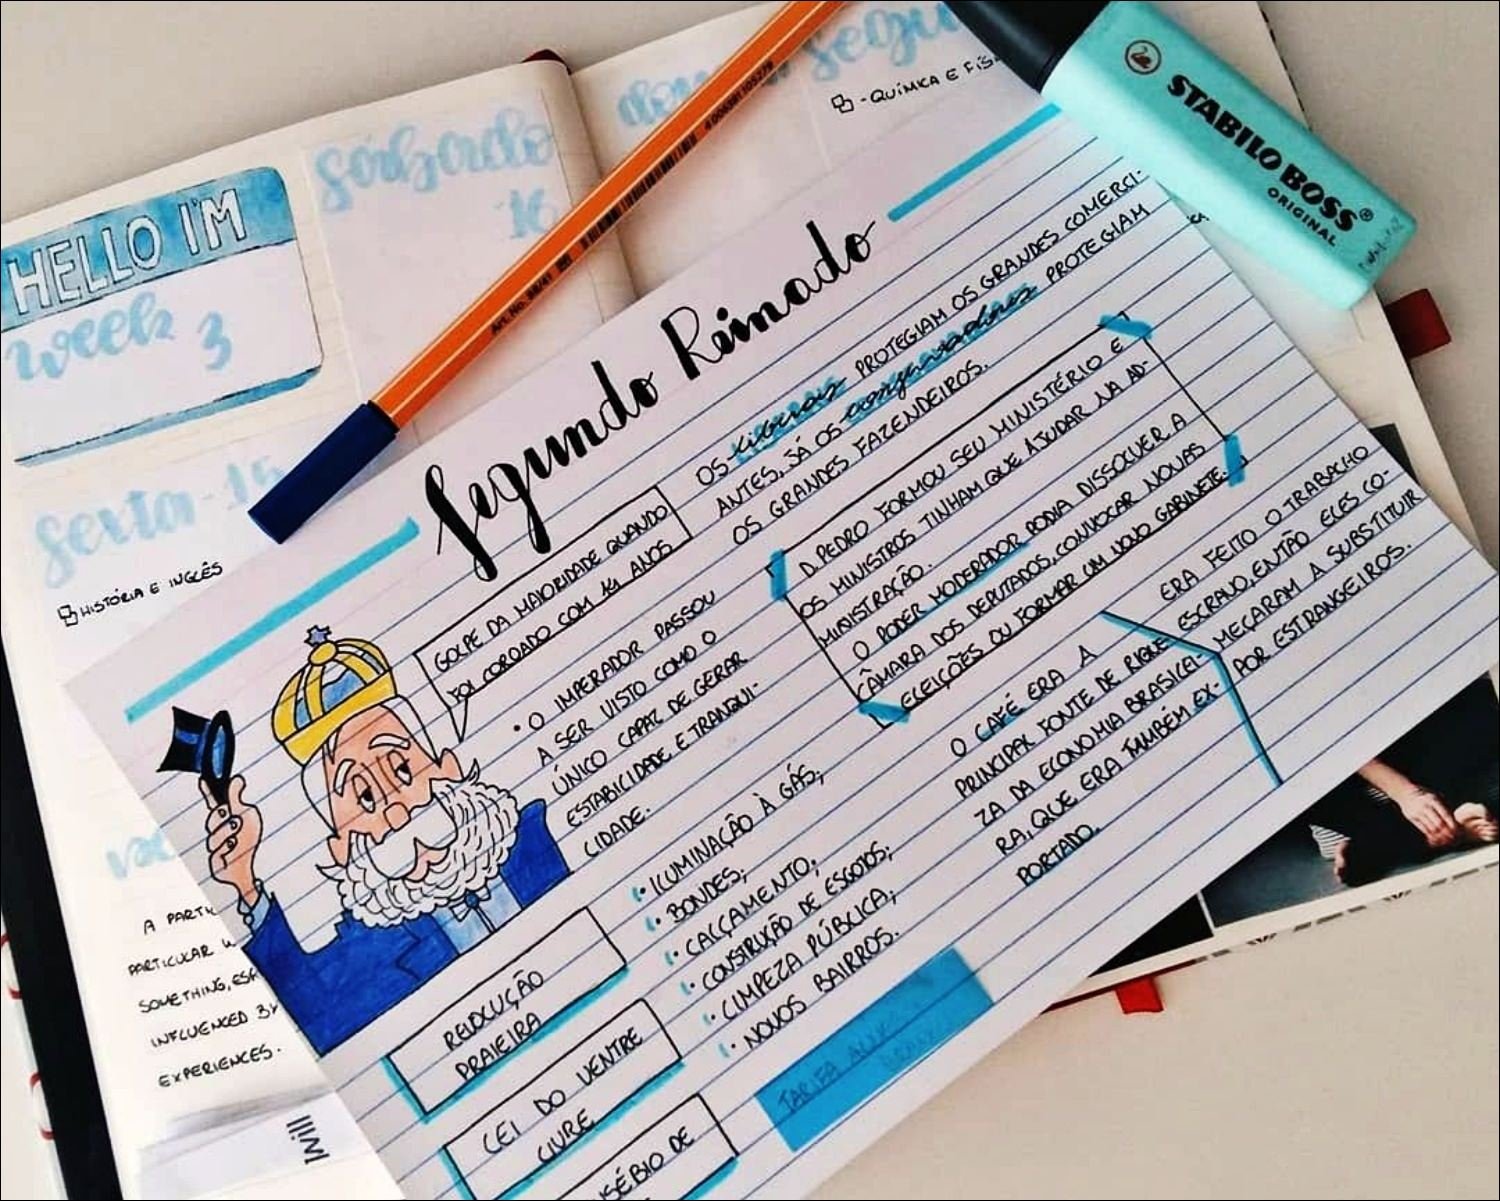 HELLO I'M
week 3
sábado
16
sexta-15
HISTÓRIA E INGLÊS
segu
- QUÍMICA E FÍS
STABILO BOSS®
ORIGINAL
Art.No. 88/41
Segundo Reinado
GOLPE DA MAIORIDADE QUANDO
FOI COROADO COM 14 ANOS
• O IMPERADOR PASSOU
A SER VISTO COMO O
ÚNICO CAPAZ DE GERAR
ESTABILIDADE E TRANQUI-
LIDADE.
OS liberais PROTEGIAM OS GRANDES COMERCI-
ANTES, JÁ OS conservadores PROTEGIAM
OS GRANDES FAZENDEIROS.
D. PEDRO FORMOU SEU MINISTÉRIO E
OS MINISTROS TINHAM QUE AJUDAR NA AD-
MINISTRAÇÃO.
O PODER MODERADOR PODIA DISSOLVER A
CÂMARA DOS DEPUTADOS, CONVOCAR NOVAS
ELEIÇÕES OU FORMAR UM NOVO GABINETE.
O CAFÉ ERA A
PRINCIPAL FONTE DE RIQUE-
ZA DA ECONOMIA BRASILEI-
RA, QUE ERA TAMBÉM EX-
PORTADO.
ERA FEITO O TRABALHO
ESCRAVO, ENTÃO ELES CO-
MEÇARAM A SUBSTITUIR
POR ESTRANGEIROS.
• ILUMINAÇÃO À GÁS;
• BONDES;
• CALÇAMENTO;
• CONSTRUÇÃO DE ESGOTOS;
• LIMPEZA PÚBLICA;
• NOVOS BAIRROS.
REVOLUÇÃO
PRAIEIRA
LEI DO VENTRE
LIVRE
USÉBIO DE
TARIFA ALVES
A PARTIC
PARTICULAR W
SOMETHING, ESP
INFLUENCED BY
EXPERIENCES.
Will